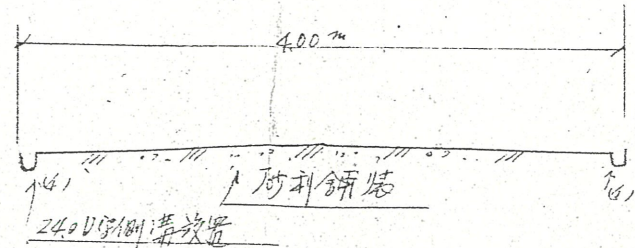 4.00 m
砂利舗装
240U字側溝放置